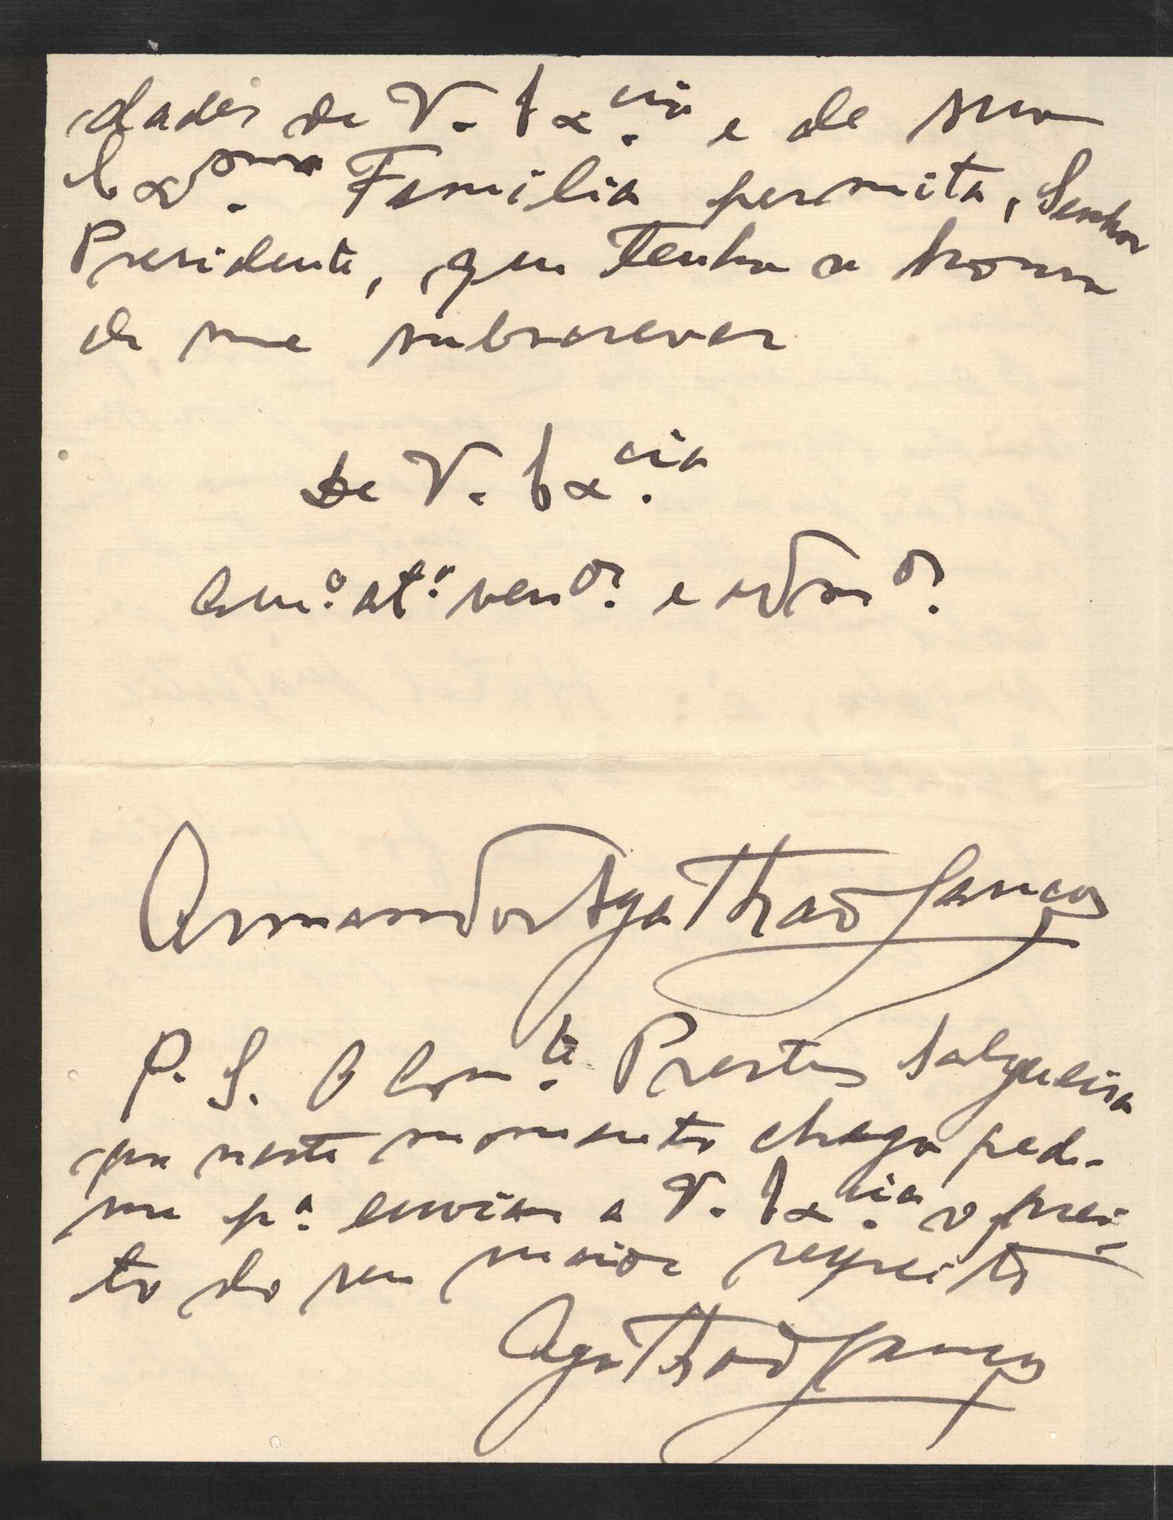 dades de V. Ex.cia e de sua
Ex.ma Familia permita, Senhor
Presidente, que tenha a honra
de me subscrever
De V. Ex.cia
Am.º at.º ven.or e obr.
Armando Agathão Lança
P. S. O Com.te Prestes Salgueiro
que neste momento chega pede-
me p.ª enviar a V. Ex.cia o prei-
to do seu maior respeito
Agathão Lança